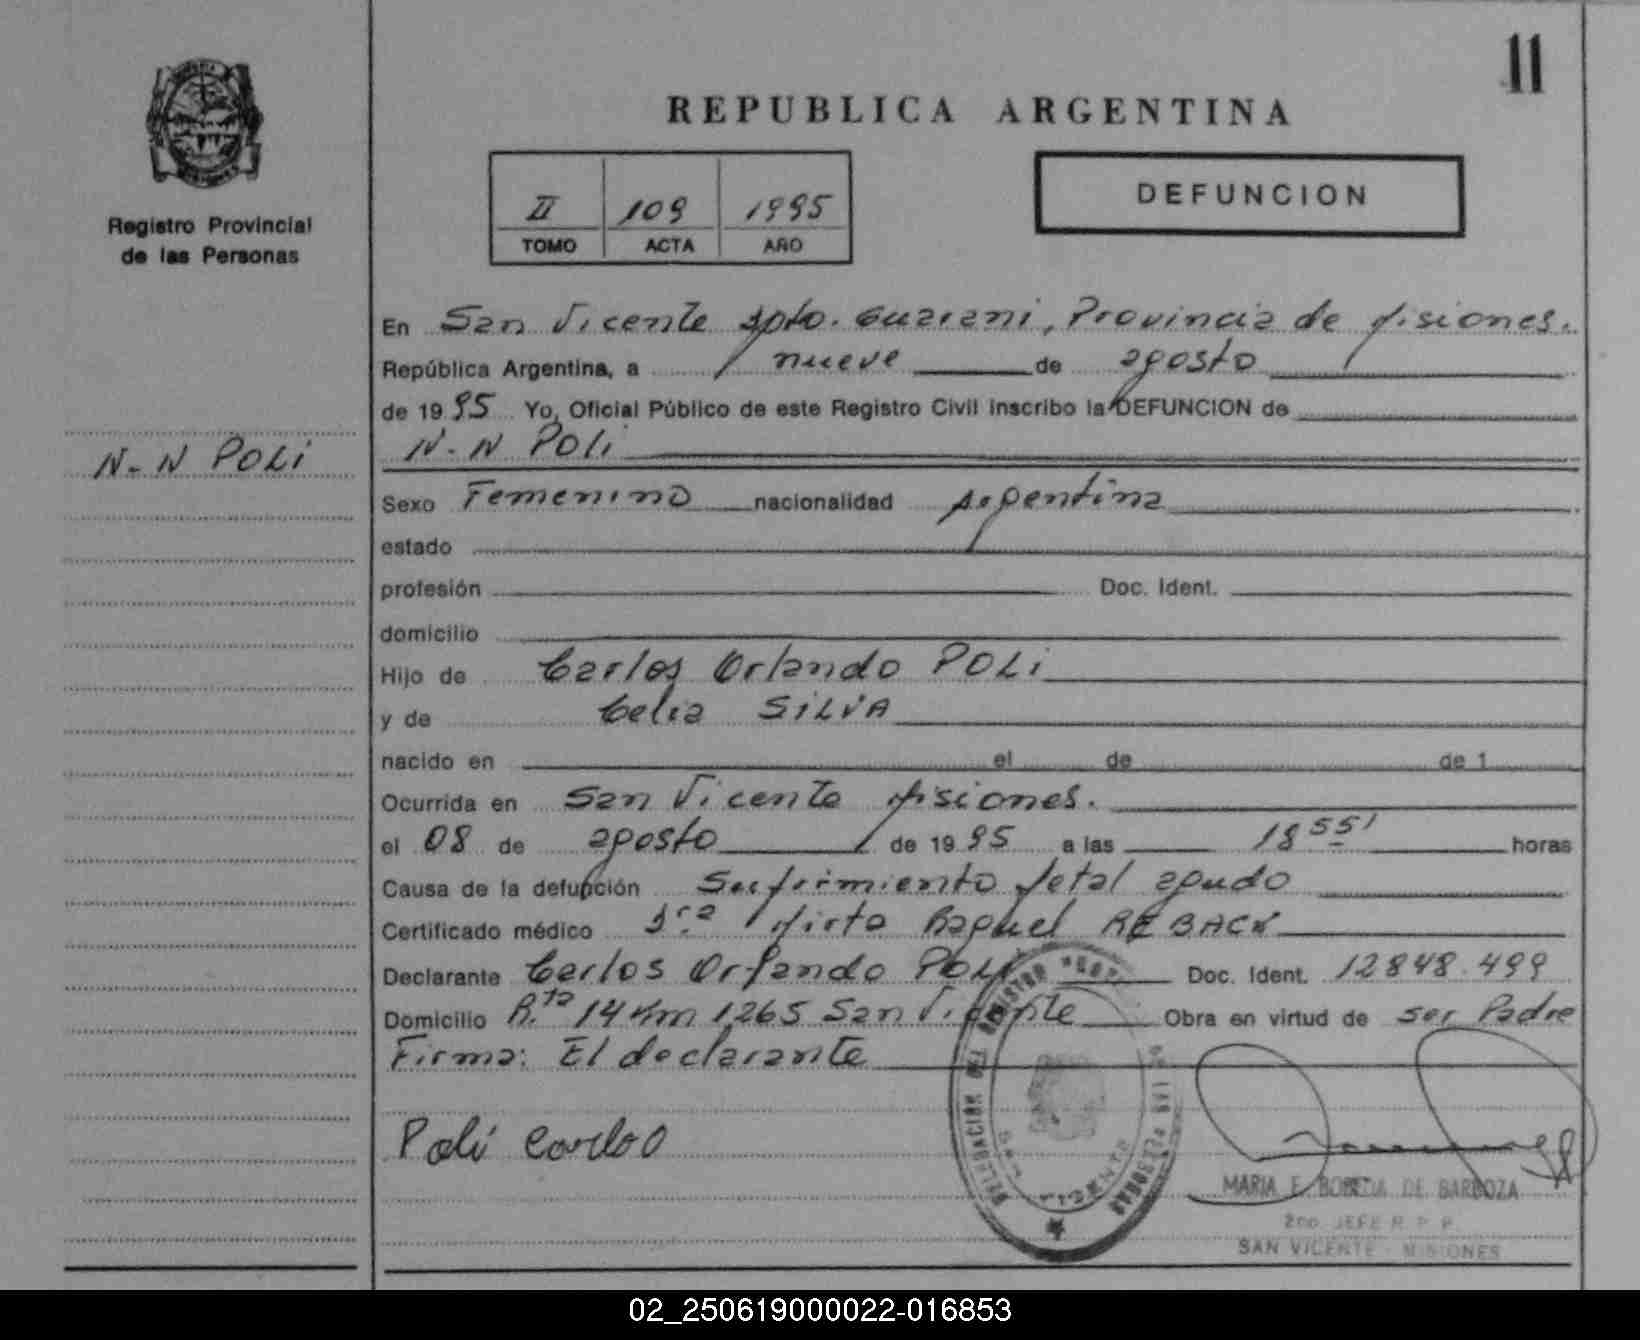 11
REPUBLICA ARGENTINA
Registro Provincial
de las Personas
II 109 1995
TOMO ACTA AÑO
DEFUNCION
En San Vicente Dpto. Guarani, Provincia de Misiones.
República Argentina, a nueve de agosto
de 1995 Yo, Oficial Público de este Registro Civil inscribo la DEFUNCION de
N-N POLI
N-N POLI
Sexo Femenino nacionalidad Argentina
estado
profesión Doc. Ident.
domicilio
Hijo de Carlos Orlando POLI
y de Celia SILVA
nacido en el de de 1
Ocurrida en San Vicente Misiones.
el 08 de agosto de 1995 a las 18 55' horas
Causa de la defunción Sufrimiento fetal agudo
Certificado médico Dra Mirta Raquel REBACK
Declarante Carlos Orlando POLI Doc. Ident. 12848.499
Domicilio R.ta 14 Km 1265 San Vicente Obra en virtud de ser Padre
Firma: El declarante
Poli Carlos
DELEGACION DEL REGISTRO
SAN VICENTE
MARIA E. BOBEDA DE BARBOZA
2do. JEFE R. P. P.
SAN VICENTE - MISIONES
02_250619000022-016853